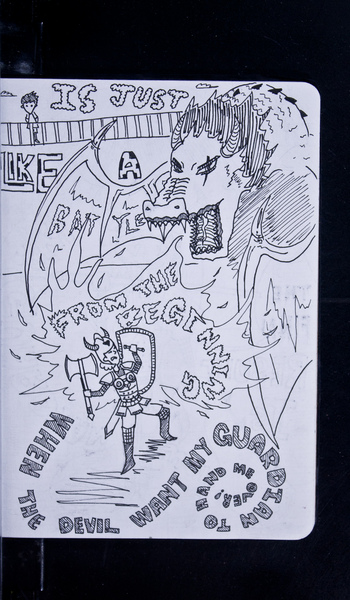 IS JUST
LIKE A
BATTLE
FROM THE
BEGINNING
WHEN THE DEVIL WANT MY GUARDIAN
TO HAND ME OVER!